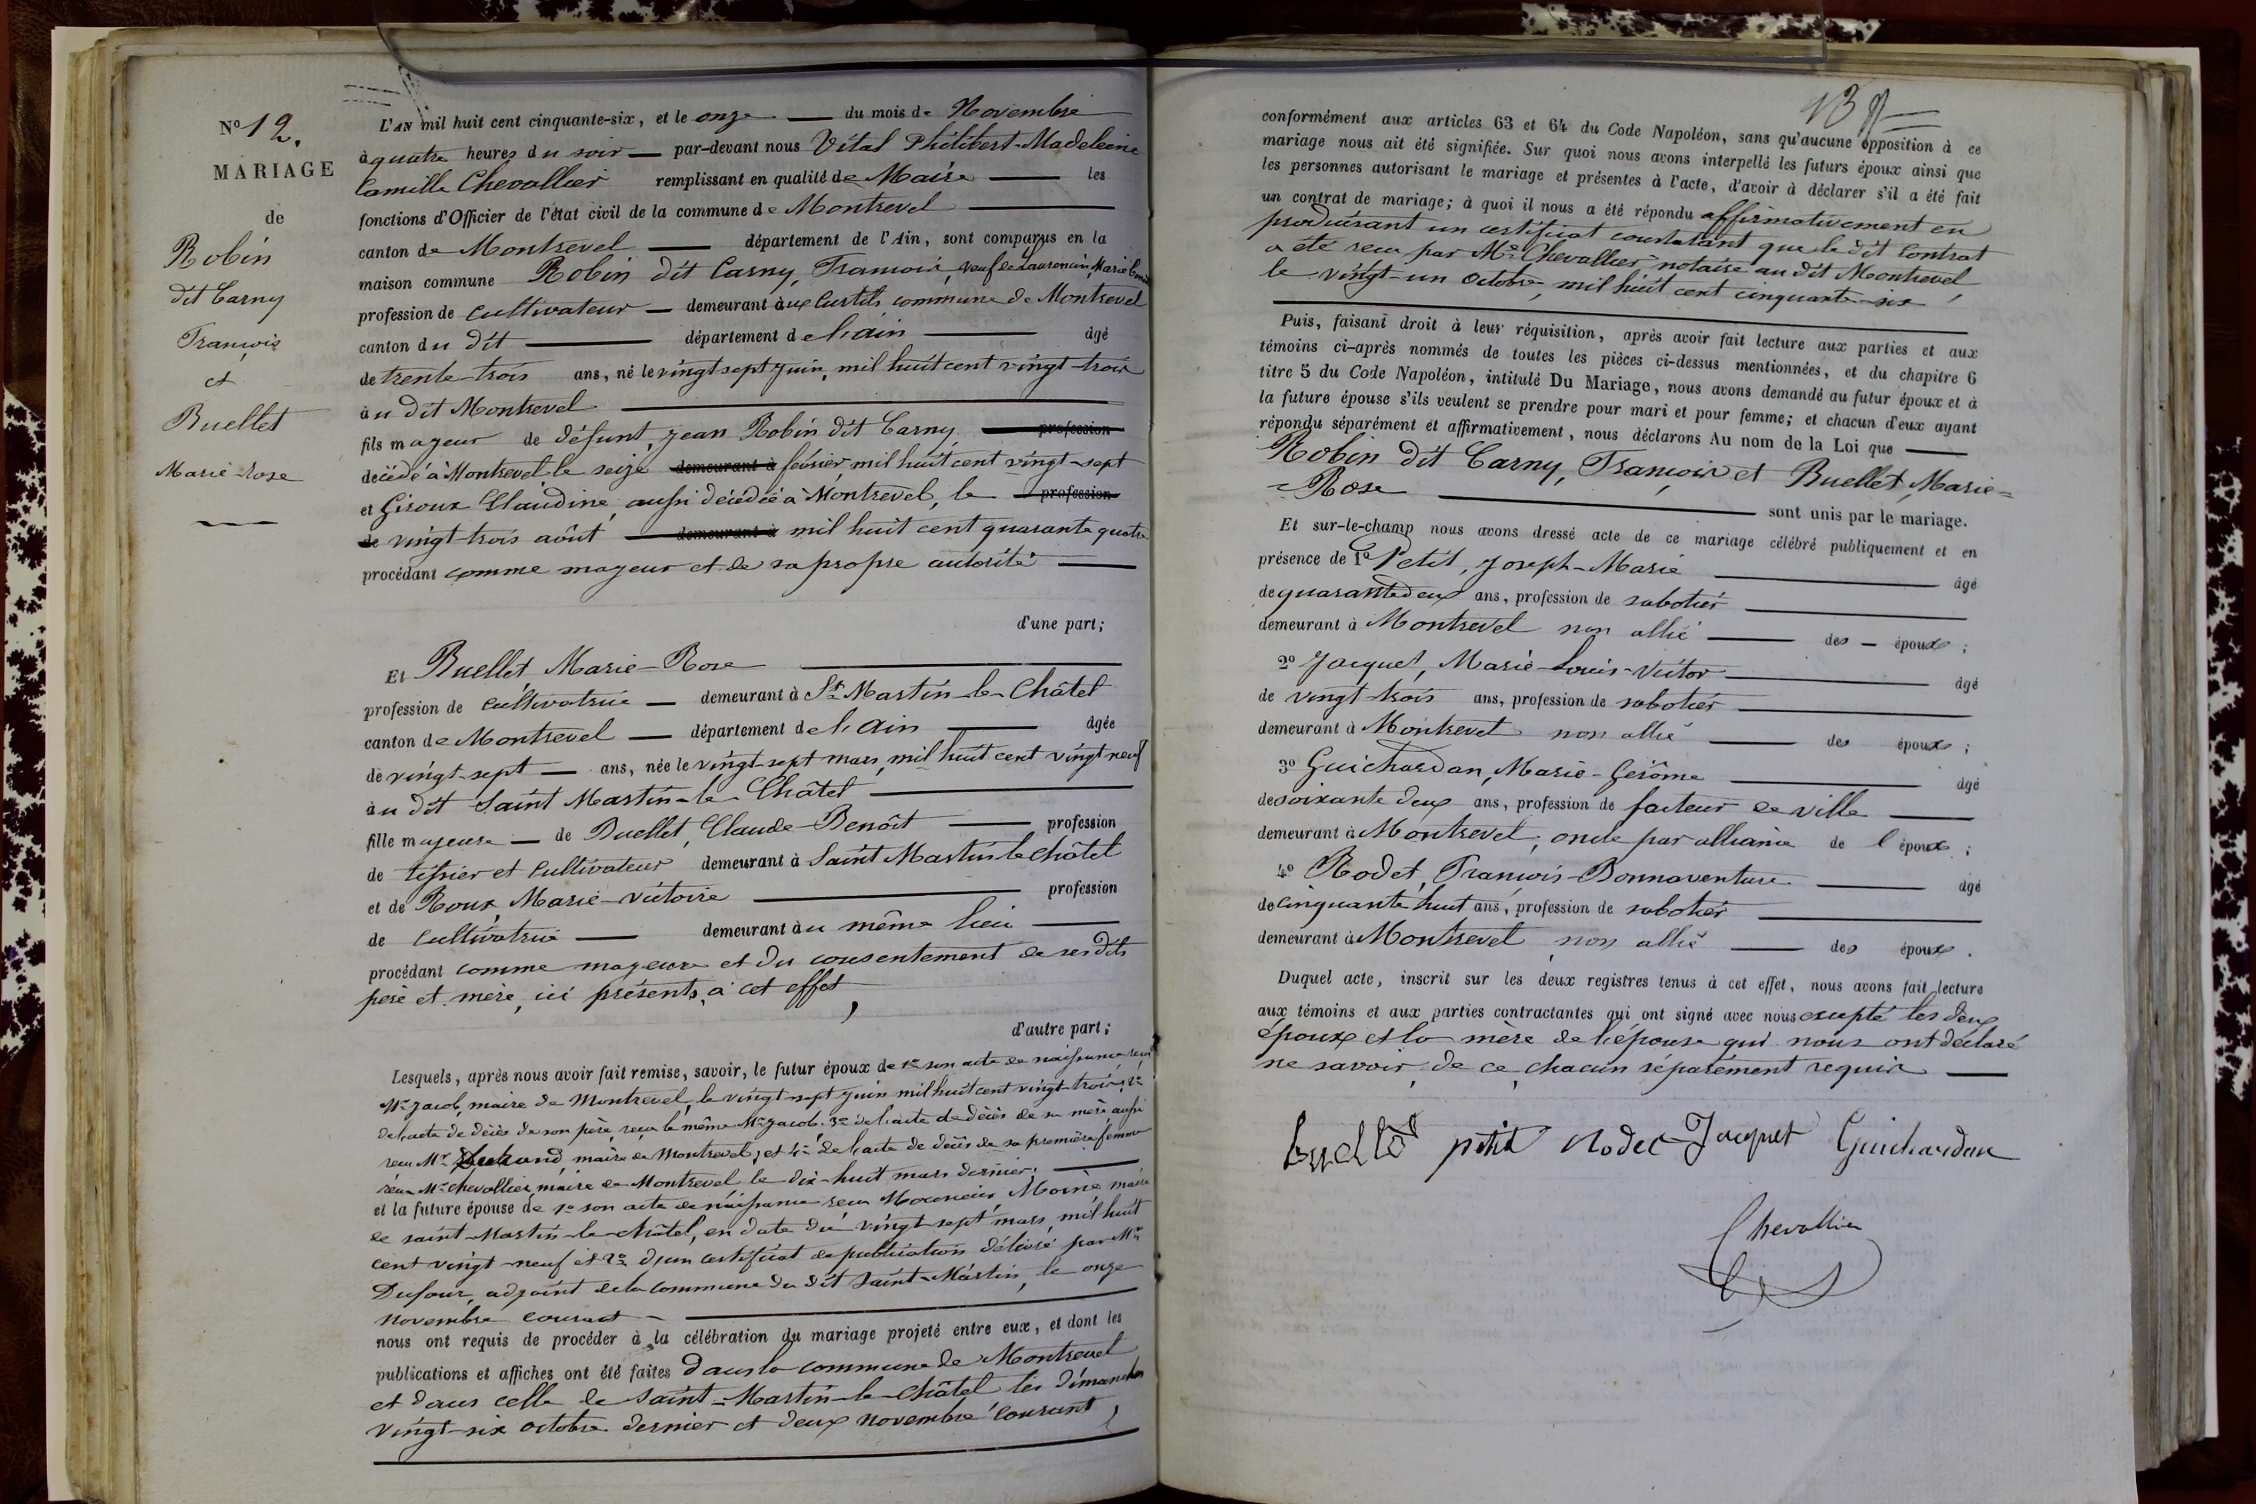 N° 12.
MARIAGE
de
Robin
dit Carny
François
et
Buellet
Marie-Rose
L'AN mil huit cent cinquante-six, et le onze du mois de Novembre
à quatre heures du soir par-devant nous Vital Philibert-Madeleine
Camille Chevallier remplissant en qualité de Maire les
fonctions d'Officier de l'état civil de la commune de Montrevel
canton de Montrevel département de l'Ain, sont comparus en la
maison commune Robin dit Carny, François, veuf de Laurencin, Marie
profession de cultivateur demeurant aux Curtils commune de Montrevel
canton du dit département de l'ain âgé
de trente-trois ans, né le vingt sept juin, mil huit cent vingt-trois
au dit Montrevel
fils mageur de défunt, jean Robin dit Carny, profession
décédé à Montrevel, le seize demeurant à février, mil huit cent vingt-sept
et Giroux Claudine, aussi décédée à Montrevel, le profession
de vingt-trois août demeurant à mil huit cent quarante quatre
procédant comme mageur et de sa propre autorité
d'une part;
Et Buellet, Marie-Rose
profession de cultivatrice demeurant à St Martin-le-Châtel
canton de Montrevel département de l'Ain âgée
de vingt-sept ans, née le vingt-sept mars, mil huit cent vingt neuf
au dit Saint Martin-le-Châtel
fille mageure de Buellet, Claude-Benoît profession
de tissier et cultivateur demeurant à Saint Martin le Châtel
et de Roux, Marie-victoire profession
de cultivatrice demeurant au même lieu
procédant comme mageure et du consentement de ses dits
père et mère, ici présents, à cet effet,
d'autre part;
Lesquels, après nous avoir fait remise, savoir, le futur époux de 1° son acte de naissance reçu
Mr Jacob, maire de Montrevel, le vingt-sept juin mil huit cent vingt-trois, 2°
de l'acte de décès de son père, reçu le même Mr Jacob. 3° de l'acte de décès de sa mère aussi
reçu Mr maire de Montrevel, et 4° de l'acte de décès de sa première femme
reçu Mr Chevallier, maire de Montrevel le dix-huit mars dernier;
et la future épouse de 1° son acte de naissance reçu Moine maire
de saint-Martin-le-Châtel, en date du vingt-sept mars, mil huit
cent vingt-neuf et 2° d'un certificat de publication délivré par Mr
Dufour, adjoint de la commune du dit Saint-Martin, le onze
novembre courant
nous ont requis de procéder à la célébration du mariage projeté entre eux, et dont les
publications et affiches ont été faites dans la commune de Montrevel
et dans celle de Saint-Martin-le-Châtel les dimanches
vingt-six octobre dernier et deux novembre courant,
13
conformément aux articles 63 et 64 du Code Napoléon, sans qu'aucune opposition à ce
mariage nous ait été signifiée. Sur quoi nous avons interpellé les futurs époux ainsi que
les personnes autorisant le mariage et présentes à l'acte, d'avoir à déclarer s'il a été fait
un contrat de mariage; à quoi il nous a été répondu affirmativement en
produisant un certificat constatant que le dit Contrat
a été reçu par Me Chevallier notaire au dit Montrevel,
le vingt-un Octobre, mil huit cent cinquante-six
Puis, faisant droit à leur réquisition, après avoir fait lecture aux parties et aux
témoins ci-après nommés de toutes les pièces ci-dessus mentionnées, et du chapitre 6
titre 5 du Code Napoléon, intitulé Du Mariage, nous avons demandé au futur époux et à
la future épouse s'ils veulent se prendre pour mari et pour femme; et chacun d'eux ayant
répondu séparément et affirmativement, nous déclarons Au nom de la Loi que
Robin dit Carny, François et Buellet, Marie-
-Rose
sont unis par le mariage.
Et sur-le-champ nous avons dressé acte de ce mariage célébré publiquement et en
présence de 1° Petit, Joseph-Marie âgé
de quarante deux ans, profession de sabotier
demeurant à Montrevel non allié des époux;
2° Jacquet, Marie-Louis-Victor âgé
de vingt-trois ans, profession de sabotier
demeurant à Montrevel non allié des époux;
3° Guichardan, Marie-Gérôme âgé
de soixante deux ans, profession de facteur de ville
demeurant à Montrevel, oncle par alliance de l'époux;
4° Rodet, François-Bonnaventure âgé
de cinquante huit ans, profession de sabotier
demeurant à Montrevel non allié des époux.
Duquel acte, inscrit sur les deux registres tenus à cet effet, nous avons fait lecture
aux témoins et aux parties contractantes qui ont signé avec nous excepté les deux
époux et la mère de l'épouse qui nous ont déclaré
ne savoir, de ce, chacun séparément requis
petit Rodet Jacquet Guichardan
Chevallier